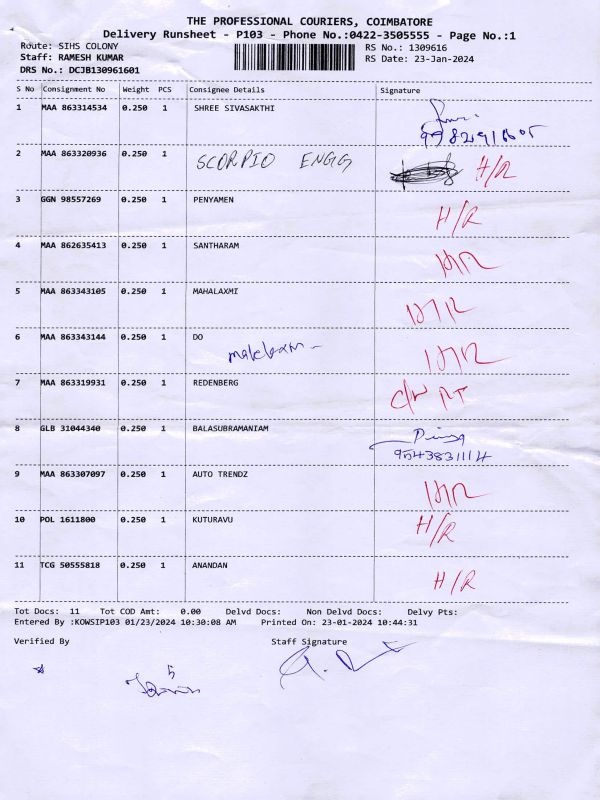 THE PROFESSIONAL COURIERS, COIMBATORE
Delivery Runsheet - P103 - Phone No.:0422-3505555 - Page No.:1
Route: SIHS COLONY RS No.: 1309616
Staff: RAMESH KUMAR RS Date: 23-Jan-2024
DRS No.: DCJB130961601
S No Consignment No Weight PCS Consignee Details Signature
1 MAA 863314534 0.250 1 SHREE SIVASAKTHI
2 MAA 863320936 0.250 1 SCORPIO ENGG H/R
3 GGN 98557269 0.250 1 PENYAMEN H/R
4 MAA 862635413 0.250 1 SANTHARAM H/R
5 MAA 863343105 0.250 1 MAHALAXMI H/R
6 MAA 863343144 0.250 1 DO H/R
7 MAA 863319931 0.250 1 REDENBERG
8 GLB 31044340 0.250 1 BALASUBRAMANIAM
9543831114
9 MAA 863307097 0.250 1 AUTO TRENDZ H/R
10 POL 1611800 0.250 1 KUTURAVU H/R
11 TCG 50555818 0.250 1 ANANDAN H/R
Tot Docs: 11 Tot COD Amt: 0.00 Delvd Docs: Non Delvd Docs: Delvy Pts:
Entered By :KOWSIP103 01/23/2024 10:30:08 AM Printed On: 23-01-2024 10:44:31
Verified By Staff Signature